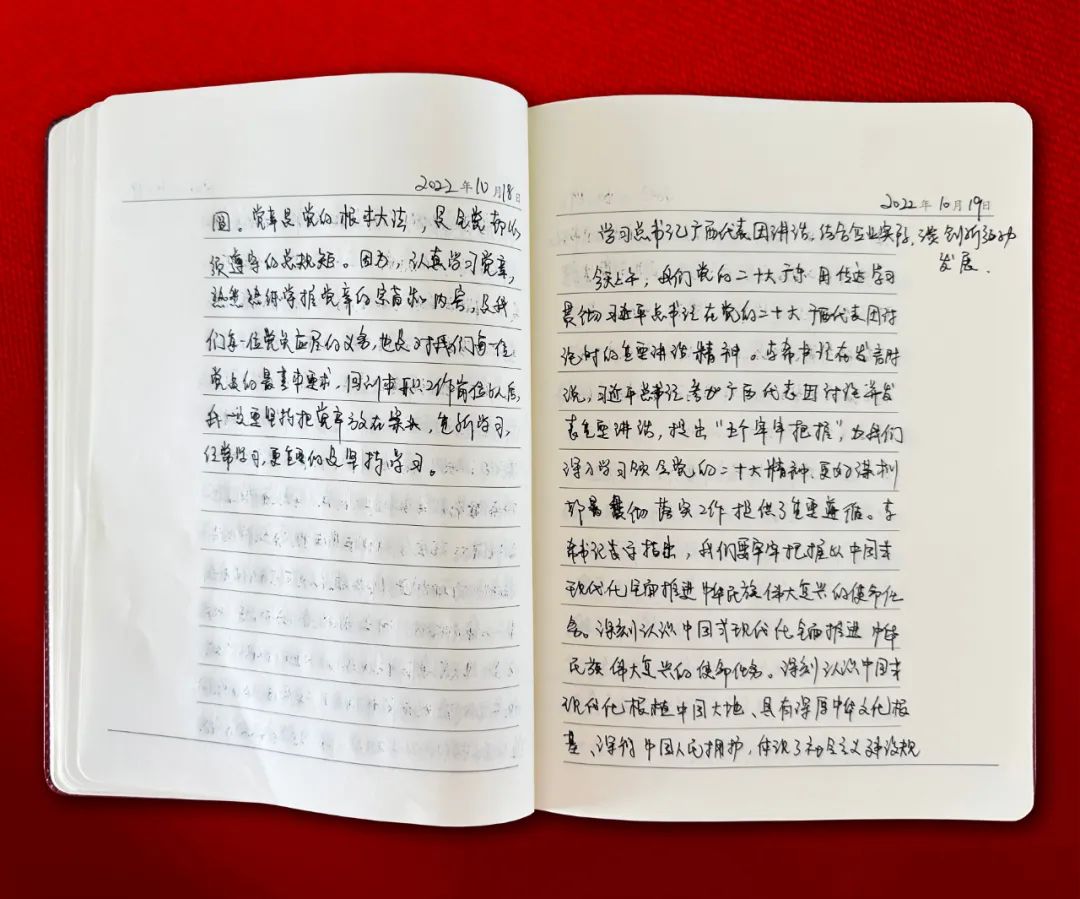 2022年10月18日
圆。党章是党的根本大法,是全党都必
须遵守的总规矩。因为,认真学习党章,
熟悉掌握党章的内容,是我
们每一位党员应尽的义务,也是对我们每一位
党员的最基本要求,回到本职工作岗位以后,
我一定要坚持把党章放在案头,
经常学习,更重要的是坚持学习。
2022年10月19日
学习总书记广西代表团讲话,结合企业实际,谈创新驱动
发展.
今天上午,我们党的二十大广东团传达学习
贯彻习近平总书记在党的二十大广西代表团讨
论时的重要讲话精神。李希书记在发言时
说,习近平总书记参加广西代表团讨论并发
表重要讲话,提出“五个牢牢把握”,为我们
深入学习领会党的二十大精神、更好谋划
部署贯彻落实工作提供了重要遵循。李
希书记表示指出,我们要牢牢把握以中国式
现代化全面推进中华民族伟大复兴的使命任
务。深刻认识中国式现代化全面推进中华
民族伟大复兴的使命任务。深刻认识中国式
现代化根植中国大地、具有深厚中华文化根
基、深得中国人民拥护,体现了社会主义建设规